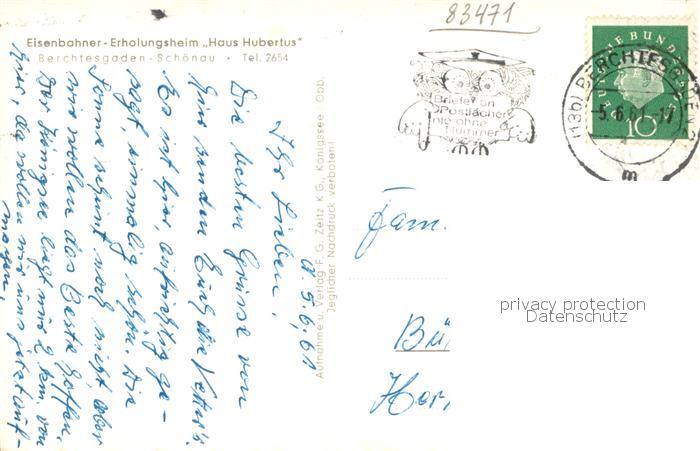 83471
Eisenbahner-Erholungsheim „Haus Hubertus"
Berchtesgaden-Schönau • Tel. 2654
Briefe an
Postfächer
nie ohne
Nummer
(13b) BERCHTESGADEN
5.6.61-17
m
10
d. 5.6.61
Ihr Lieben!
Die besten Grüsse von
hier senden Euch die Vetter's.
Es ist hier, aufrichtig ge-
sagt, einmalig schön. Die
Sonne scheint noch nicht, aber
wir wollen das Beste hoffen.
Der Königsee liegt nur 2 km. von
hier, da wollen wir uns jetzt auf-
machen.
Aufnahme u. Verlag F. G. Zeitz K G., Königssee Obb.
Jeglicher Nachdruck verboten!
Fam.
Bü
Hor
privacy protection
Datenschutz